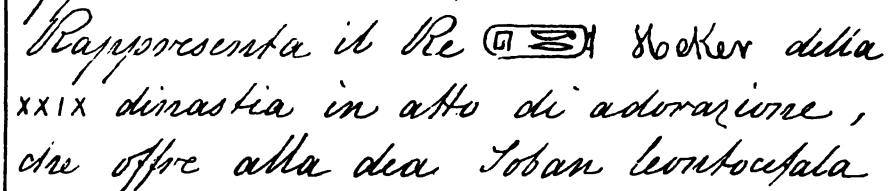 Rappresenta il Re Hoker della
XXIX dinastia in atto di adorazione,
che offre alla dea Soban leontocefala